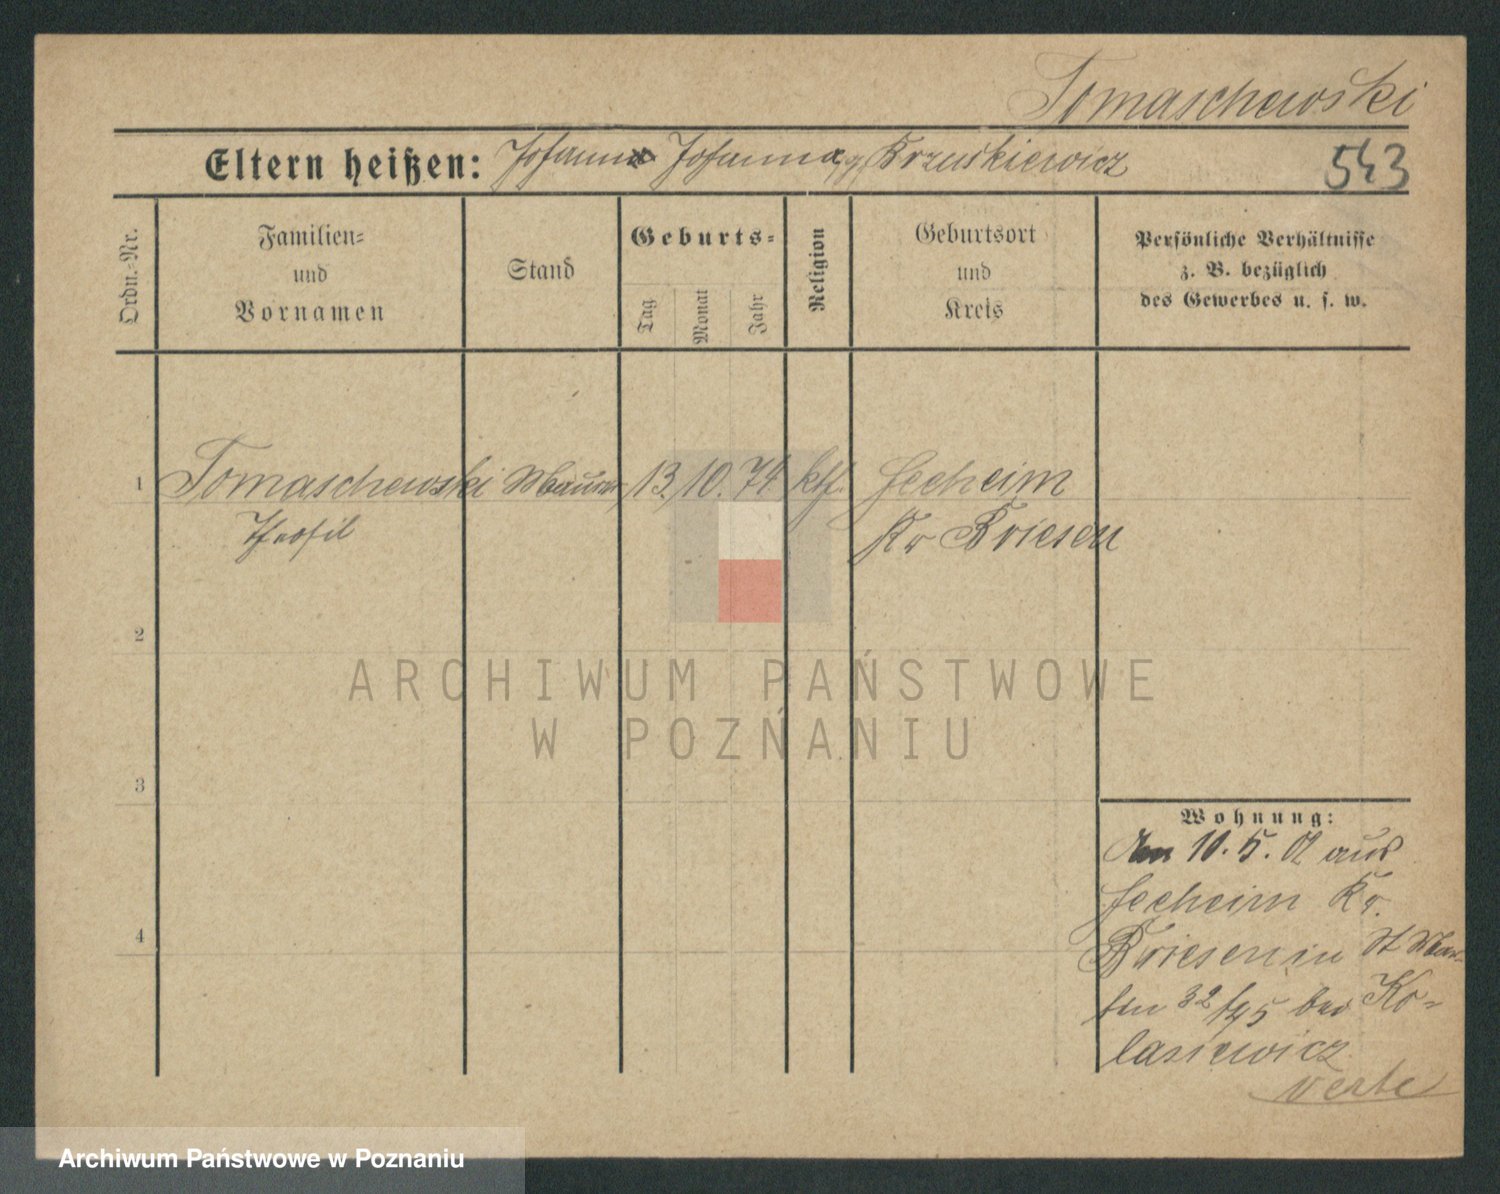 Tomaschewski
Eltern heißen: Johann Johanna g. Brzuskiewicz
543
Ordn.-Nr.
Familien-
und
Vornamen
Stand
Geburts-
Tag
Monat
Jahr
Religion
Geburtsort
und
Kreis
Persönliche Verhältnisse
z. B. bezüglich
des Gewerbes u. s. w.
1 Tomaschewski Maurer 13. 10. 74 kth. Seeheim
Theofil Kr Briesen
2
3
4
Wohnung:
Am 10. 5. 01 aus
Seeheim Kr.
Briesen in St Mar-
tin 32/45 bei Ko-
lasiewicz
verte
ARCHIWUM PAŃSTWOWE
W POZNANIU
Archiwum Państwowe w Poznaniu